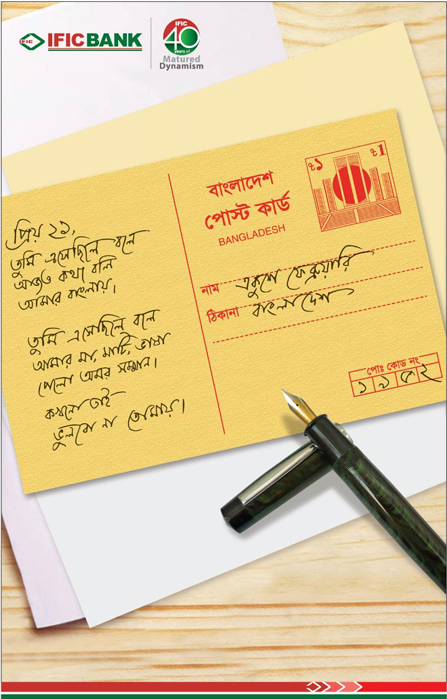 IFIC BANK
IFIC
40
YEARS OF
Matured
Dynamism
প্রিয় ২১,
তুমি এসেছিলে বলে
আজও কথা বলি
আমার বাংলায়।
তুমি এসেছিলে বলে
আমার মা, মাটি, ভাষা
পেলো অমর সম্মান।
কখনো তাই
ভুলবো না তোমায়।
বাংলাদেশ
পোস্ট কার্ড
BANGLADESH
৳১
৳1
নাম একুশে ফেব্রুয়ারি
ঠিকানা বাংলাদেশ
পোঃ কোড নং
১৯৫২